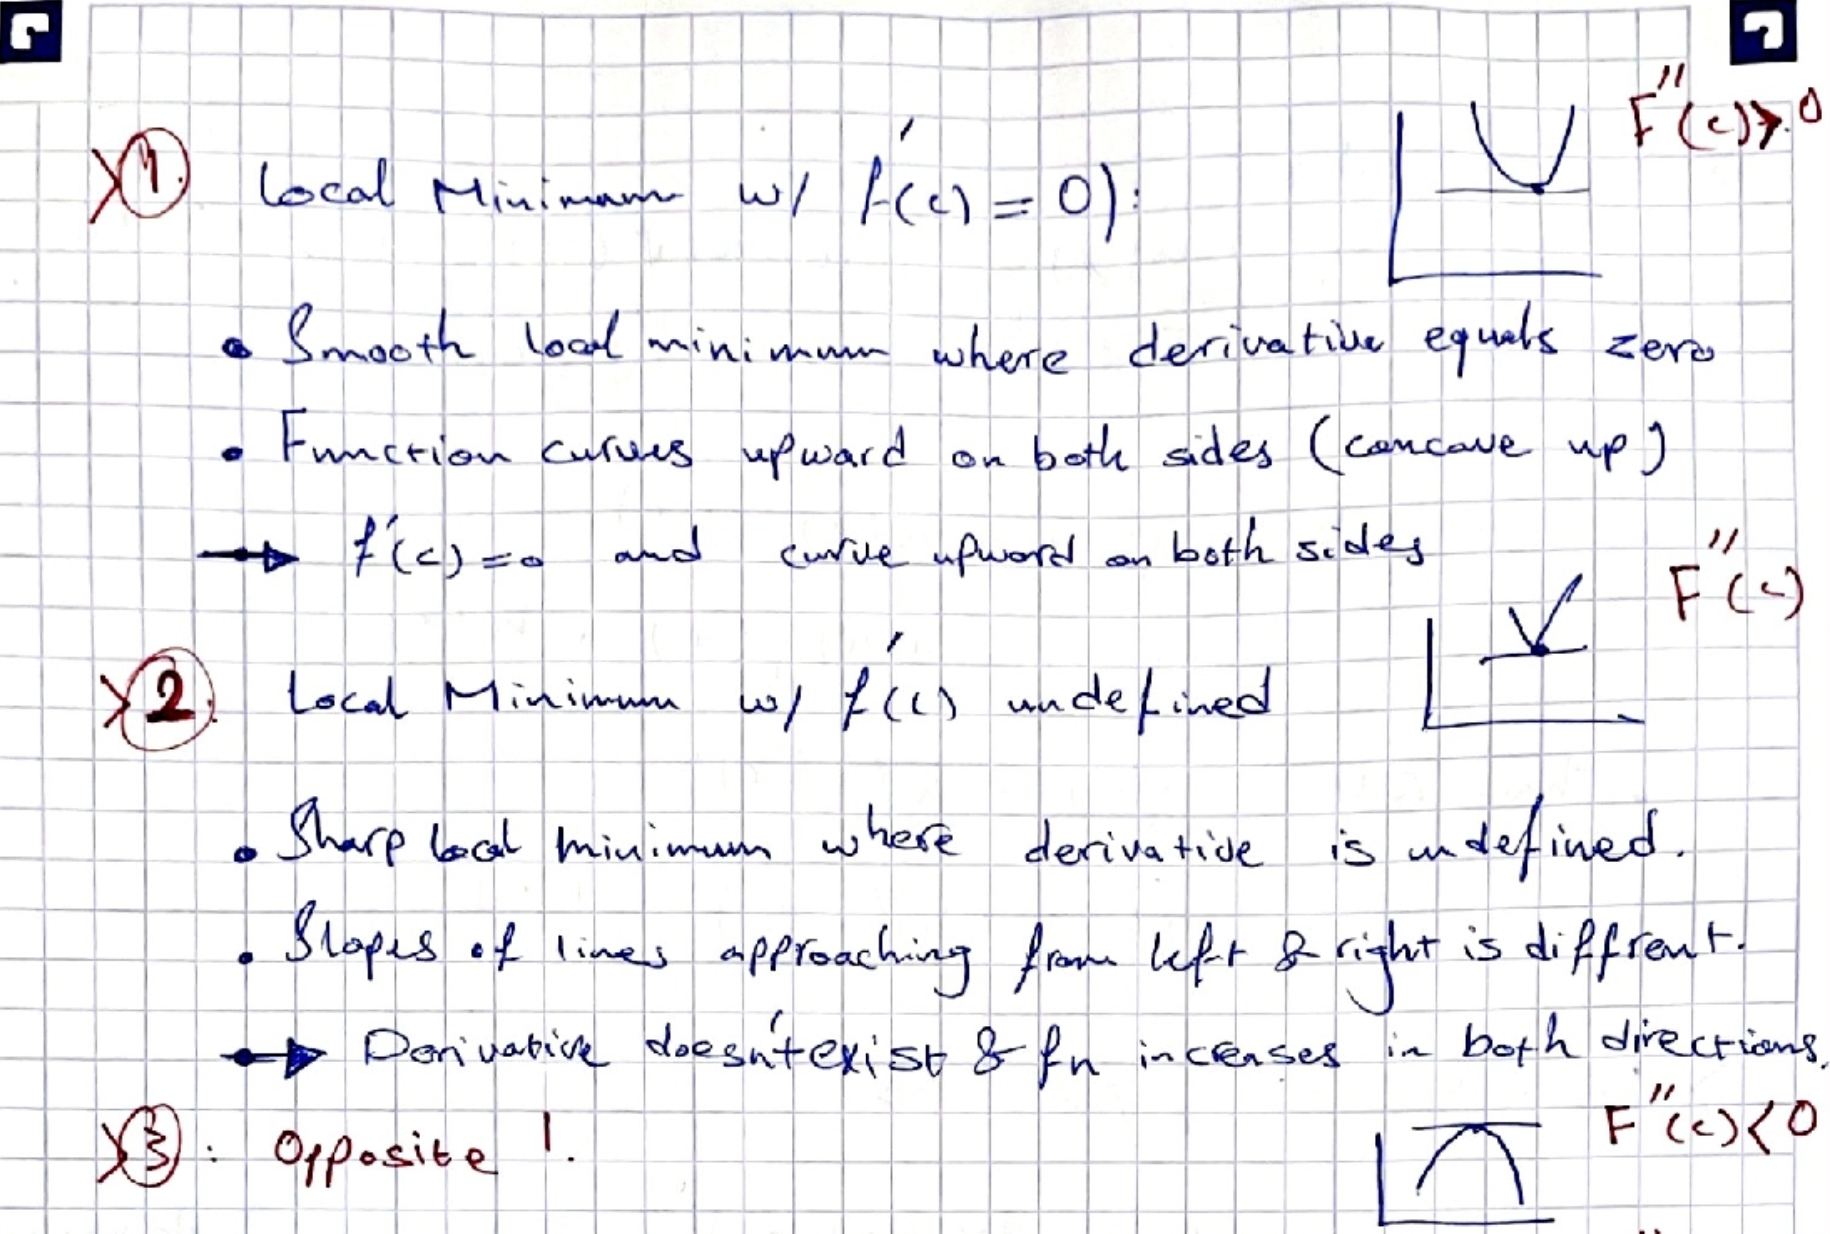 F''(c)>0
1. Local Minimum w/ f'(c) = 0):
• Smooth local minimum where derivative equals zero
• Function curves upward on both sides (concave up)
→ f'(c)=0 and curve upward on both sides
F''(c)
2. Local Minimum w/ f'(c) undefined
• Sharp local minimum where derivative is undefined.
• Slopes of lines approaching from left & right is diffrent.
→ Derivative doesn't exist & fn increases in both directions.
F''(c)<0
3: Opposite !.